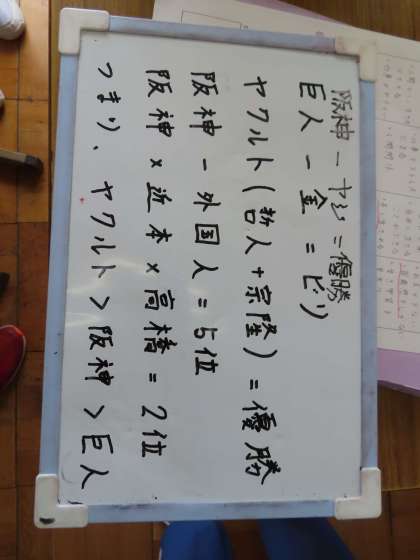 阪神 - ヤジ = 優勝
巨人 - 金 = ビリ
ヤクルト (哲人 + 宗隆) = 優勝
阪神 - 外国人 = 5位
阪神 × 近本 × 高橋 = 2位
つまり、ヤクルト > 阪神 > 巨人